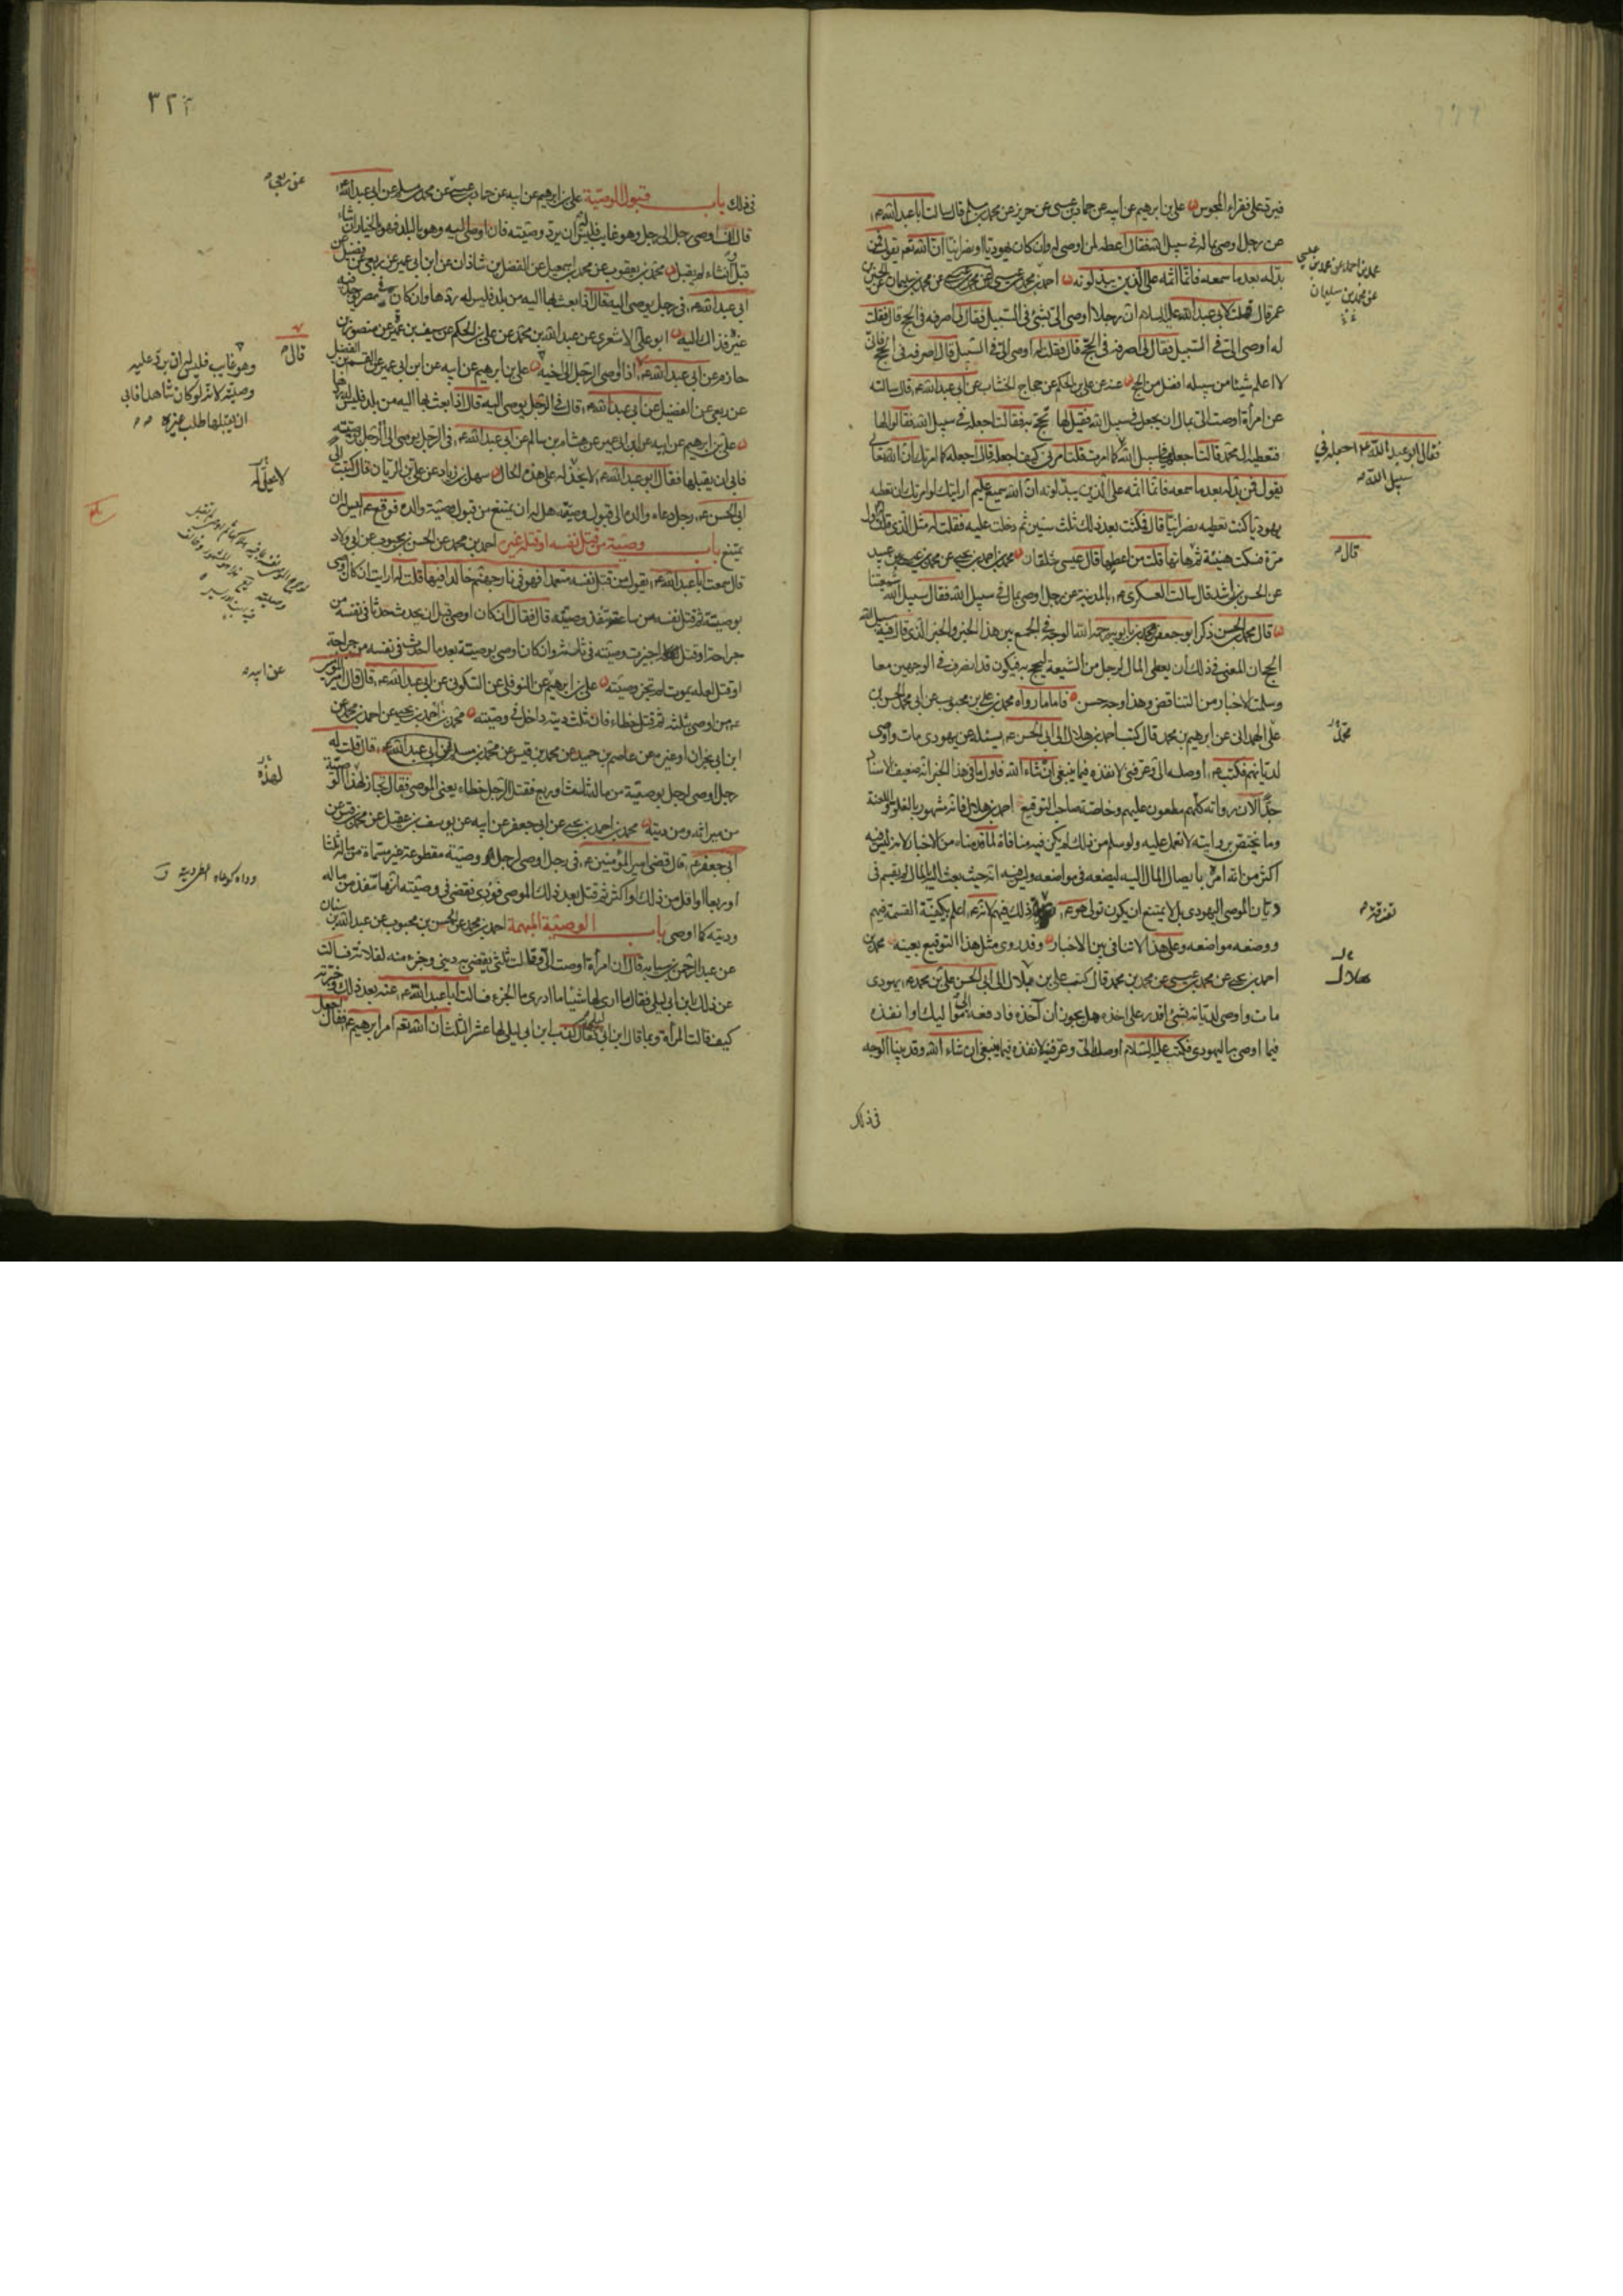 فيرد على فقراء المجوس علي بن ابرهيم عن ابيه عن حماد بن عيسى عن حريز عن محمد بن مسلم قال سالت ابا عبد الله ع
عن رجل اوصى بماله في سبيل الله فقال اعطه لمن اوصى له وان كان يهوديا او نصرانيا ان الله تع يقول فمن
بدله بعد ما سمعه فانما اثمه على الذين يبدلونه احمد بن محمد بن عيسى عن محمد بن سليمان عن الحسين بن
عمر قال قلت لابي عبد الله عليه السلام ان رجلا اوصى الي بشئ في السبيل فقال لي اصرفه في الحج قال فقلت
له اوصى الي في السبيل فقال لي اصرفه في الحج قال فقلت له اوصى الي في السبيل قال اصرفه في الحج فاني
لا اعلم شيئا من سبيله افضل من الحج عنه عن علي بن الحكم عن حجاج الخشاب عن ابي عبد الله ع قال سالته
عن امرأة اوصت الي بمال ان يجعل في سبيل الله فقيل لها تحج به فقالت اجعله في سبيل الله فقالوا لها
فنعطيه آل محمد قالت اجعله في سبيل الله كما امرت قلت امرني كيف اجعله قال اجعله كما امرتك ان الله تعالى
يقول فمن بدله بعد ما سمعه فانما اثمه على الذين يبدلونه ان الله سميع عليم ارايتك لو امرتك ان تعطيه
يهوديا كنت تعطيه نصرانيا قال فمكثت بعد ذلك ثلث سنين ثم دخلت عليه فقلت له مثل الذي قلت اول
مرة فسكت هنيئة ثم قال هاتها قلت من اعطيها قال عيسى شلقان محمد بن احمد بن يحيى عن محمد بن عيسى بن عبيد
عن الحسن بن راشد قال سالت العسكري ع بالمدينة عن رجل اوصى بمال في سبيل الله فقال سبيل الله شيعتنا
قال محمد بن الحسن ذكر ابو جعفر محمد بن بابويه رحمه الله الوجه في الجمع بين هذا الخبر والخبر الذي قال فيه سبيل الله
الحج ان المعنى في ذلك ان يعطى المال لرجل من الشيعة ليحج به فيكون قد انصرف في الوجهين معا
وسلمت الاخبار من التناقض وهذا وجه حسن فاما ما رواه محمد بن علي بن محبوب عن ابي محمد الحسن بن
علي الهمداني عن ابرهيم بن محمد قال كتب احمد بن هلال الى ابي الحسن ع يسئله عن يهودي مات واوصى
لديانهم فكتب ع اوصله الي وعرفني لانفذه فيما ينبغي ان شاء الله فاول ما في هذا الخبر انه ضعيف الاسناد
جدا لان رواته كلهم مطعون عليهم وخاصة صاحب التوقيع احمد بن هلال فانه مشهور بالغلو واللعنة
وما يختص بروايته لا نعمل عليه ولو سلم من ذلك لم يكن فيه منافاة لما قدمناه من الاخبار لانه ليس فيه
اكثر من انه امره بايصال المال اليه ليضعه في مواضعه وليس فيه انه حيث بعث اليه المال لم يقسم في
ديان الموصي اليهودي بل لا يمتنع ان يكون تولى هو ع ذلك فيهم لانه ع اعلم بكيفية القسمة فيهم
ووضعه مواضعه وعلى هذا لا تنافي بين الاخبار وقد روى مثل هذا التوقيع بعينه محمد بن
احمد بن يحيى عن محمد بن عيسى عن محمد بن محمد قال كتب علي بن بلال الى ابي الحسن علي بن محمد ع يهودي
مات واوصى لديانه بشئ اقدر على اخذه هل يجوز ان آخذه فادفعه الى مواليك او انفذه
فيما اوصى به اليهودي فكتب عليه السلام اوصله الي وعرفنيه لانفذه فيما ينبغي ان شاء الله وقد بينا الوجه
في ذلك
محمد بن احمد عن محمد بن عيسى
عن محمد بن سليمان
فقال ابو عبد الله ع اجعله في
سبيل الله
قال
محمد
تفرقته
هلال
٣٢٢
في ذلك باب قبول الوصية علي بن ابرهيم عن ابيه عن حماد بن عيسى عن محمد بن مسلم عن ابي عبد الله ع
قال ان اوصى رجل الى رجل وهو غايب فليس له ان يرد وصيته فان اوصى اليه وهو بالبلد فهو بالخيار ان شاء
قبل وان شاء لم يقبل محمد بن يعقوب عن محمد بن اسمعيل عن الفضل بن شاذان عن ابن ابي عمير عن ربعي عن فضيل عن
ابي عبد الله ع في رجل يوصى اليه قال اذا بعث بها اليه من بلد فليس له ردها وان كان في مصر يوجد فيه
غيره فذاك اليه ابو علي الاشعري عن عبد الله بن محمد عن علي بن الحكم عن سيف بن عميرة عن منصور بن
حازم عن ابي عبد الله ع اذا اوصى الرجل الى اخيه علي بن ابرهيم عن ابيه عن ابن ابي عمير عن القسم بن الفضيل
عن ربعي عن الفضيل عن ابي عبد الله ع قال في الرجل يوصى اليه قال اذا بعث بها اليه من بلد فليس له ردها
علي بن ابرهيم عن ابيه عن ابن ابي عمير عن هشام بن سالم عن ابي عبد الله ع في الرجل يوصى الى الرجل بوصيته
فابى ان يقبلها فقال ابو عبد الله ع لا يخذله على هذه الحال سهل بن زياد عن علي بن الريان قال كتبت الى
ابي الحسن ع رجل دعاه والده الى قبول وصيته هل له ان يمتنع من قبول وصية والده فوقع ع ليس له ان
يمتنع باب وصية من قتل نفسه او قتله غيره احمد بن محمد عن الحسن بن محبوب عن ابي ولاد
قال سمعت ابا عبد الله ع يقول من قتل نفسه متعمدا فهو في نار جهنم خالدا فيها قلت له ارايت ان كان اوصى
بوصية ثم قتل نفسه من ساعته تنفذ وصيته قال فقال ان كان اوصى قبل ان يحدث حدثا في نفسه من
جراحة او قتل اجيزت وصيته في ثلثه وان كان اوصى بوصية بعد ما احدث في نفسه من جراحة
او قتل لعله يموت لم تجز وصيته علي بن ابرهيم عن النوفلي عن السكوني عن ابي عبد الله ع قال قال امير المؤمنين
ع من اوصى بثلثه ثم قتل خطاء فان ثلث ديته داخل في وصيته محمد بن احمد بن يحيى عن احمد بن محمد عن
ابن ابي نجران او غيره عن عاصم بن حميد عن محمد بن قيس عن محمد بن مسلم عن ابي عبد الله ع قال قلت له
رجل اوصى لرجل بوصية من ماله ثلث او ربع فقتل الرجل خطاء يعني الموصي فقال تجاز لهذا الوصية
من ميراثه ومن ديته محمد بن احمد بن يحيى عن ابي جعفر عن ابيه عن يوسف بن عقيل عن محمد بن قيس عن
ابي جعفر ع قال قضى امير المؤمنين ع في رجل اوصى لرجل وصية مقطوعة غير مسماة من ماله ثلثا
او ربعا او اقل من ذلك او اكثر ثم قتل بعد ذلك الموصي فودي فقضى في وصيته انها تنفذ من ماله
وديته كما اوصى باب الوصية المبهمة احمد بن محمد عن الحسن بن محبوب عن عبد الله بن سنان
عن عبد الرحمن بن سيابة قال ان امرأة اوصت الي وقالت ثلثي يقضى به ديني وجزء منه لفلانة فسالت
عن ذلك ابن ابي ليلى فقال ما ارى لها شيئا ما ادري ما الجزء فسالت ابا عبد الله ع عنه بعد ذلك وخبرته
كيف قالت المرأة وما قال ابن ابي ليلى فقال كذب ابن ابي ليلى لها عشر الثلث ان الله تع امر ابرهيم ع فقال اجعل
عن ربعي
قال
وهو غايب فليس له ان يرد عليه
وصيته لانه لو كان شاهدا فابى
ان يقبلها طلب غيره
عن ابيه
لهذه